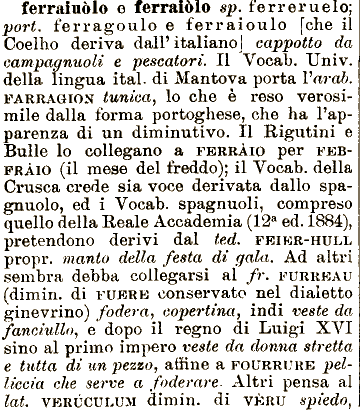 ferraiuòlo e ferraiòlo sp. ferreruelo;
port. ferragoulo e ferraioulo [che il
Coelho deriva dall'italiano] cappotto da
campagnuoli e pescatori. Il Vocab. Univ.
della lingua ital. di Mantova porta l'arab.
FARRAGION tunica, lo che è reso verosi-
mile dalla forma portoghese, che ha l'ap-
parenza di un diminutivo. Il Rigutini e
Bulle lo collegano a FERRÀIO per FEB-
FRÀIO (il mese del freddo); il Vocab. della
Crusca crede sia voce derivata dallo spa-
gnuolo, ed i Vocab. spagnuoli, compreso
quello della Reale Accademia (12ª ed. 1884),
pretendono derivi dal ted. FEIER-HULL
propr. manto della festa di gala. Ad altri
sembra debba collegarsi al fr. FURREAU
(dimin. di FUERE conservato nel dialetto
ginevrino) fodera, copertina, indi veste da
fanciullo, e dopo il regno di Luigi XVI
sino al primo impero veste da donna stretta
e tutta di un pezzo, affine a FOURRURE pel-
liccia che serve a foderare. Altri pensa al
lat. VERÚCULUM dimin. di VÈRU spiedo,